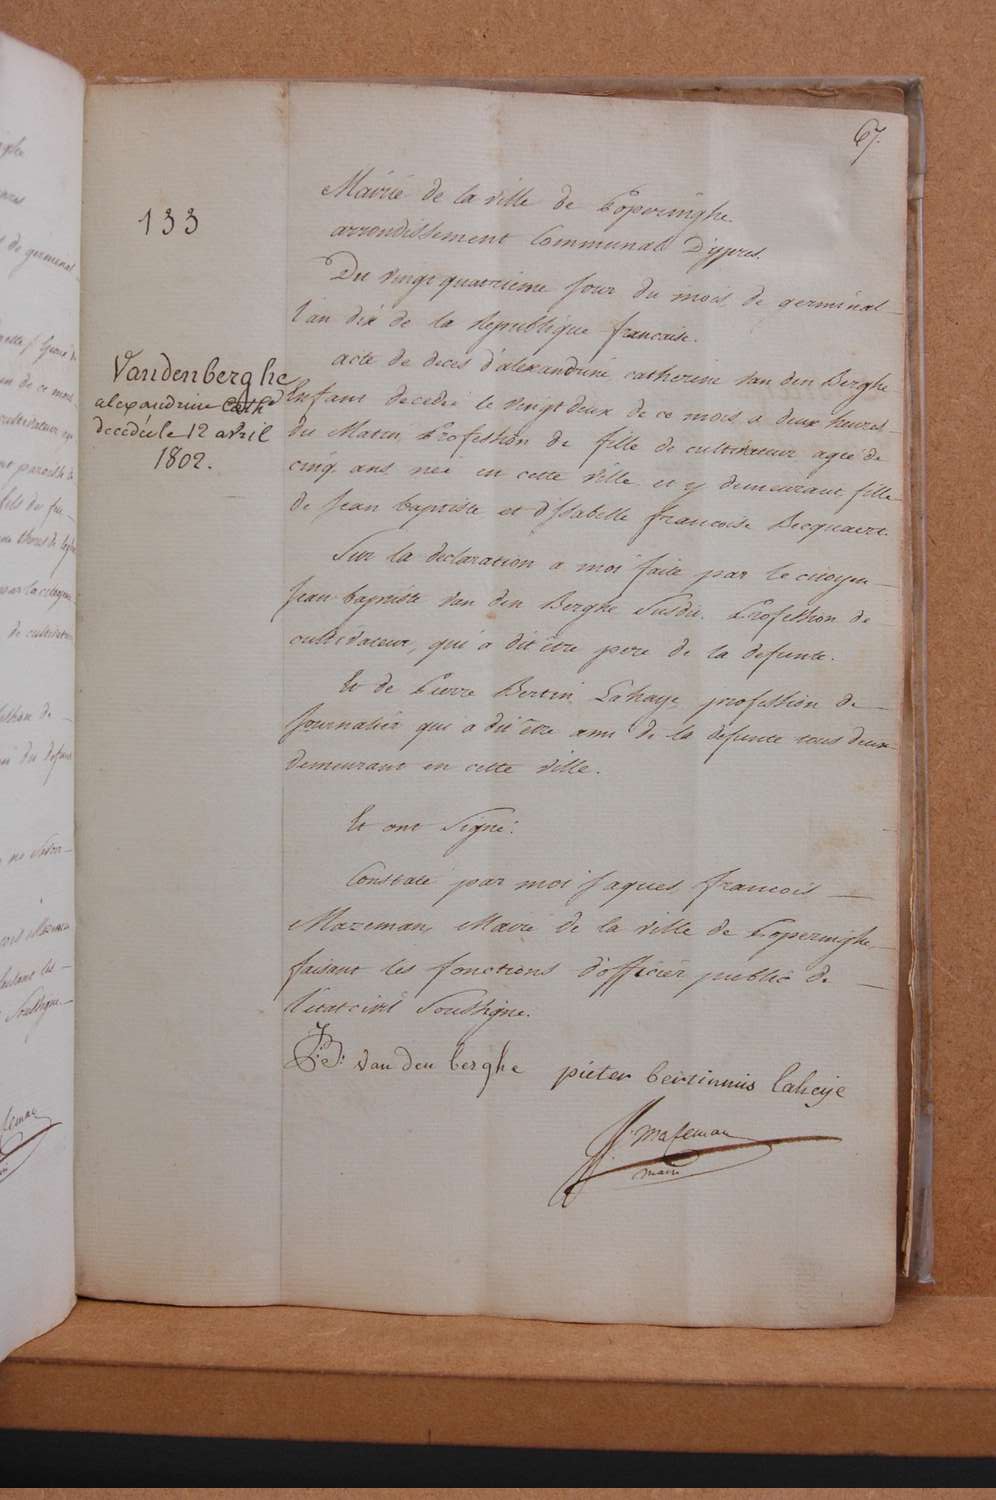 67.
133
Mairie de la ville de Poperinghe.
arrondissement Communal D'ypres.
Du vingt quatrieme Jour du mois de germinal
l'an dix de la Republique francaise.
acte de deces d'alexandrine catherine van den Berghe
Enfant decedée le vingt deux de ce mois a deux heures
du Matin, Profession de fille de cultivateur agée de
cinq ans née en cette ville et y demeurant fille
de Jean baptiste et d'Isabelle francoise Becquaert.
Vandenberghe
alexandrine Cathe
decedée le 12 avril
1802.
Sur la declaration a moi faite par le citoyen
Jean baptiste van den Berghe Susdit. Profession de
cultivateur, qui a dit être pere de la defunte.
Et de Pierre Bertin Lahaye profession de
Journalier qui a dit être ami de la defunte tous deux
demeurant en cette ville.
Et ont Signé:
Constaté par moi Jaques francois
Mazeman, Maire de la ville de Poperinghe,
faisant les fonctions d'officier public de
l'état civil Soussigné.
J: B: van den berghe pieter bertinnis laheije
J. Mazeman
maire